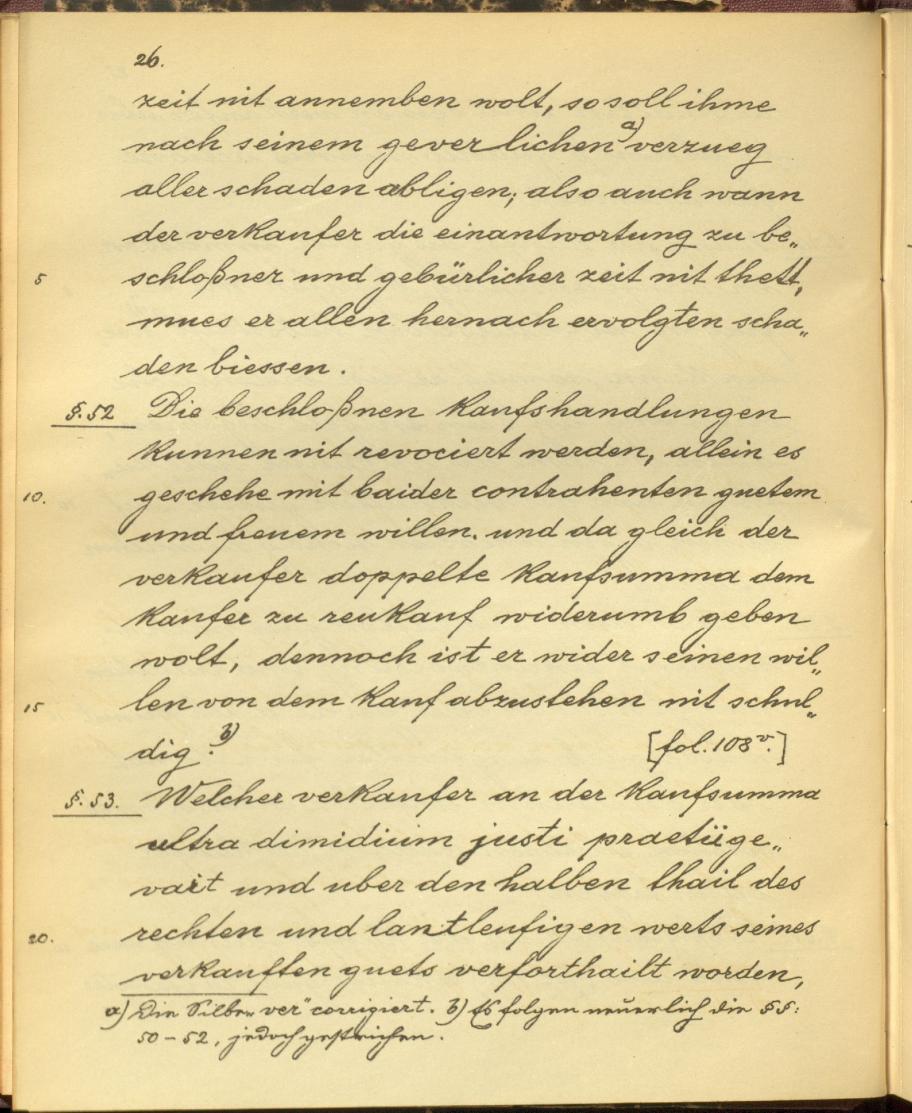 26.
zeit nit annemben wolt, so soll ihme
nach seinem geverlichen a) verzueg
aller schaden abligen; also auch wann
der verkaufer die einantwortung zu be„
5 schloßner und gebürlicher zeit nit thett,
mues er allen hernach ervolgten scha„
den biessen.
§. 52 Die beschloßnen kaufshandlungen
kunnen nit revociert werden, allein es
10. geschehe mit baider contrahenten guetem
und freuem willen. und da gleich der
verkaufer doppelte kaufsumma dem
kaufer zu reukauf widerumb geben
wolt, dennoch ist er wider seinen wil„
15 len von dem kauf abzustehen nit schul„
dig. b) [fol. 108v.]
§. 53. Welcher verkaufer an der kaufsumma
ultra dimidium justi praetii ge„
vait und uber den halben thail des
20. rechten und lantleufigen werts seines
verkauften guets verforthailt worden,
a) Die Silbe „ver“ corrigiert. b) Es folgen neuerlich die §§:
50 – 52, jedoch gestrichen.